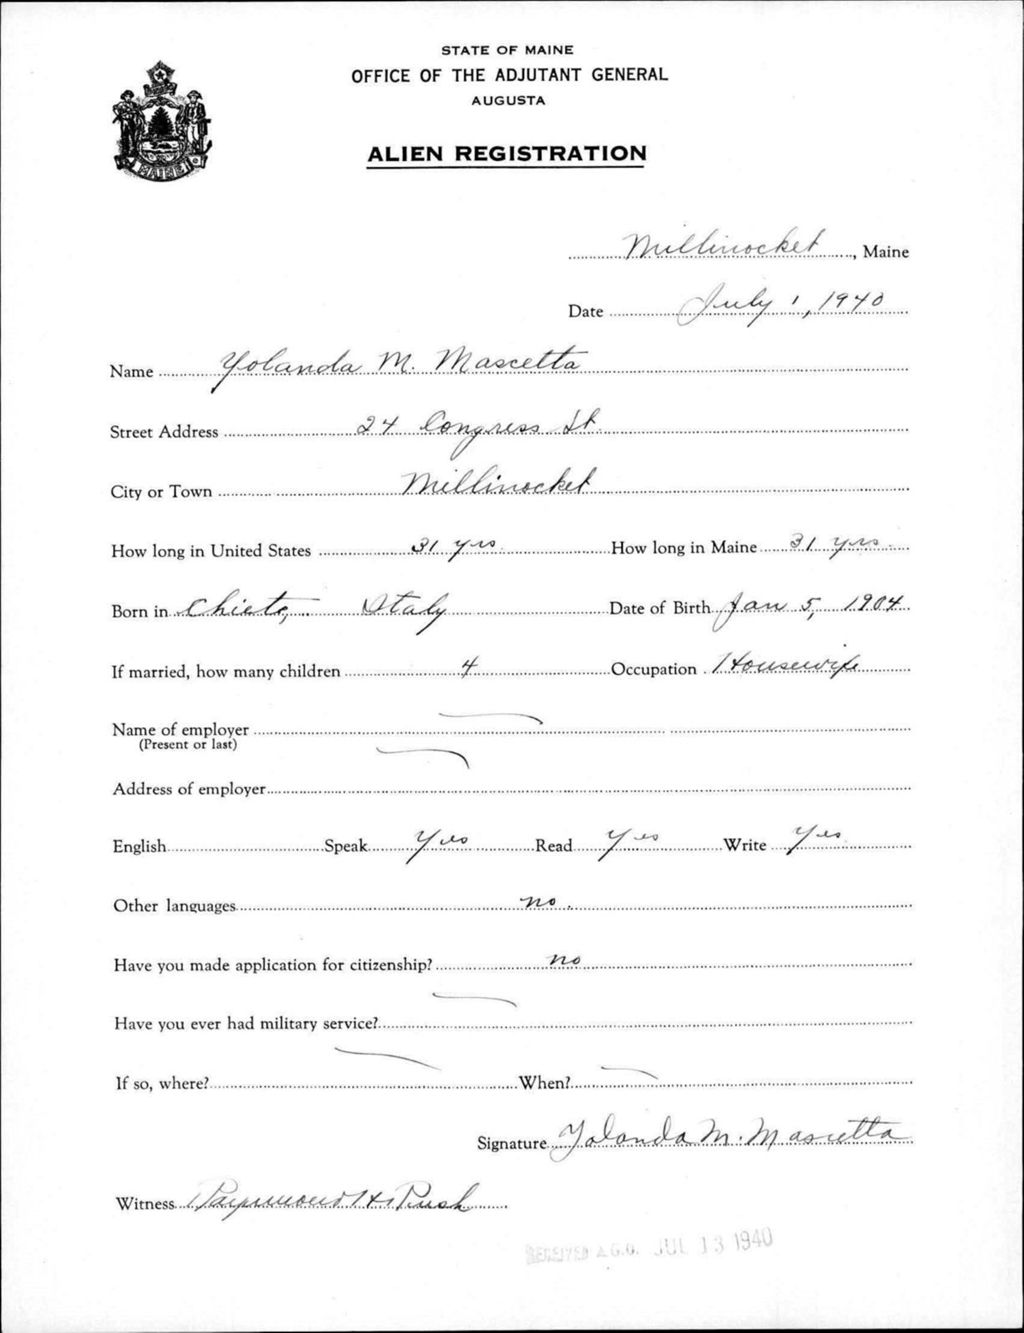 STATE OF MAINE
OFFICE OF THE ADJUTANT GENERAL
AUGUSTA
ALIEN REGISTRATION
MAINE
Millinocket, Maine
Date July 1, 1940
Name Yolanda M. Mascetta
Street Address 24 Congress St.
City or Town Millinocket
How long in United States 31 yrs. How long in Maine 31 yrs.
Born in Chieto, Italy Date of Birth Jan 5, 1904
If married, how many children 4 Occupation Housewife
Name of employer
(Present or last)
Address of employer
English Speak Yes Read Yes Write Yes
Other languages no.
Have you made application for citizenship? no
Have you ever had military service?
If so, where? When?
Signature Yolanda M. Mascetta
Witness Raymond H. Rush
RECEIVED A.G.O. JUL 13 1940